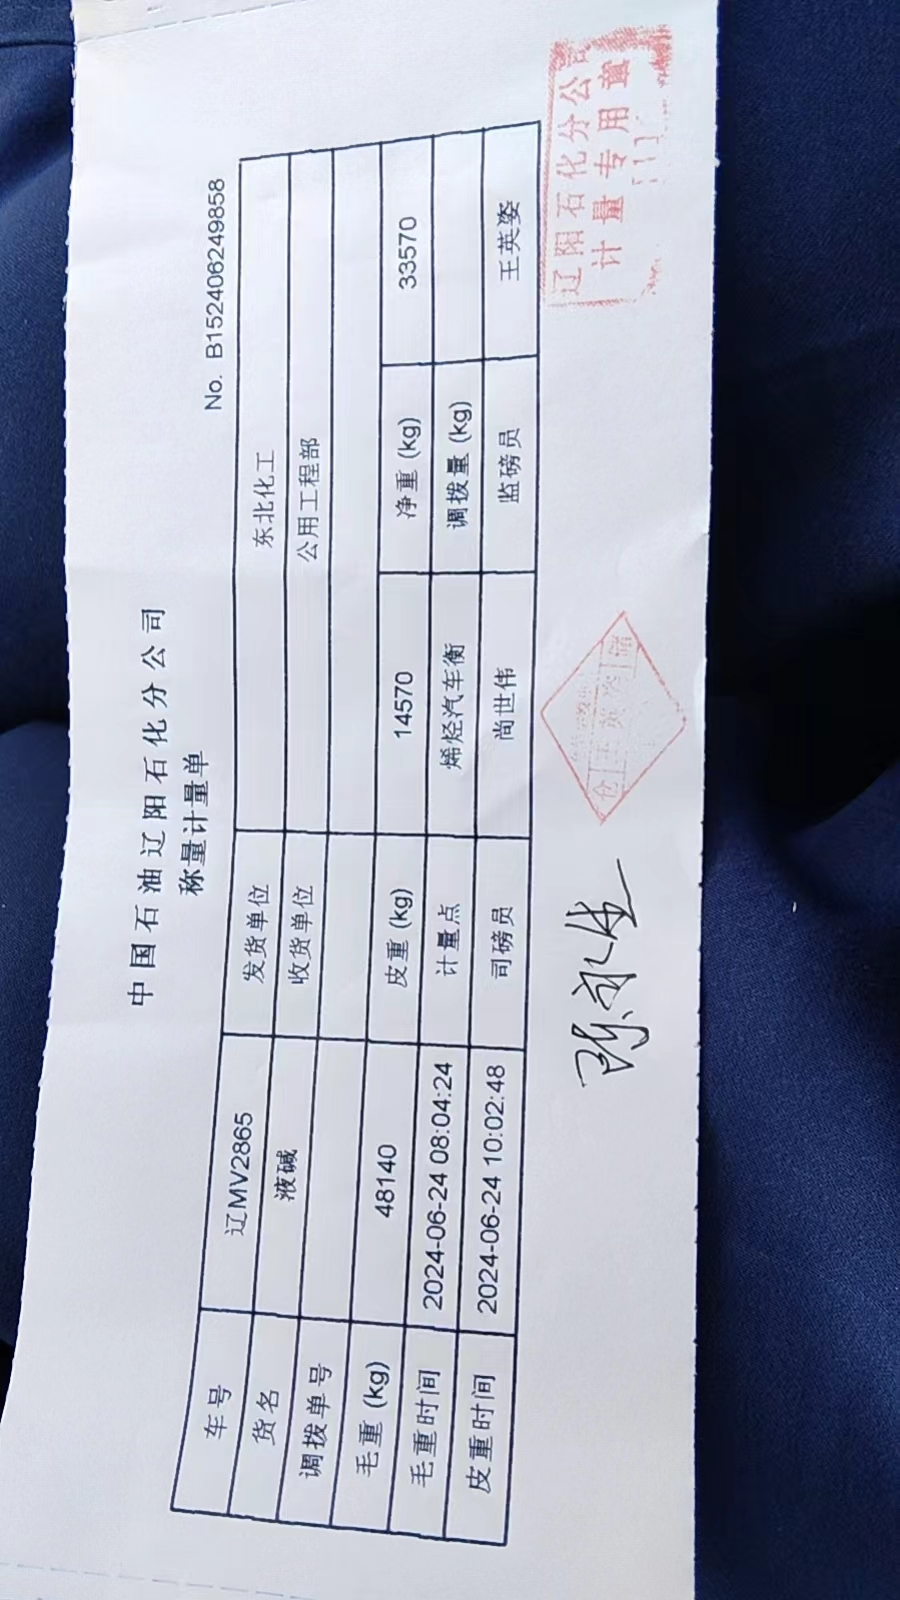 中国石油辽阳石化分公司
称量计量单
No. B152406249858
车号 辽MV2865 发货单位 东北化工
货名 液碱 收货单位 公用工程部
调拨单号
毛重 (kg) 48140 皮重 (kg) 14570 净重 (kg) 33570
毛重时间 2024-06-24 08:04:24 计量点 烯烃汽车衡 调拨量 (kg)
皮重时间 2024-06-24 10:02:48 司磅员 尚世伟 监磅员 王英姿
辽阳石化分公司
计量专用章